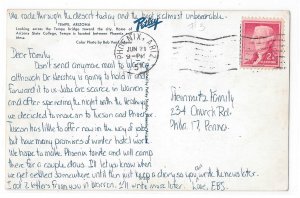 We rode through the desert today and the heat is almost unbearable.
TEMPE, ARIZONA
Looking across the Tempe Bridge toward the city. Home of
Arizona State College, Tempe is located between Phoenix
Color Photo by Bob
Petley
PHOENIX, ARIZ.
JUN 23
PM
2¢
Dear Family
Don't send anymore mail to Warren
although Dr. Hershey is going to hold it and
forward it to us. Jobs are scarce in Warren
and after spending the night with the Hersheys
we decided to move on to Tucson and Phoenix.
Tucson has little to offer now in the way of jobs
but how many promises of winter hotel work.
We hope to make Phoenix tonite and will camp
there for a couple days. I'll let you know when
we get settled somewhere until then just keep a diary so you write the news later.
I got 2 letters from in Warren. I'll write more later. Love, EBS.
Steinmutz Family
234 Church Rd.
Phila. 17, Penna.